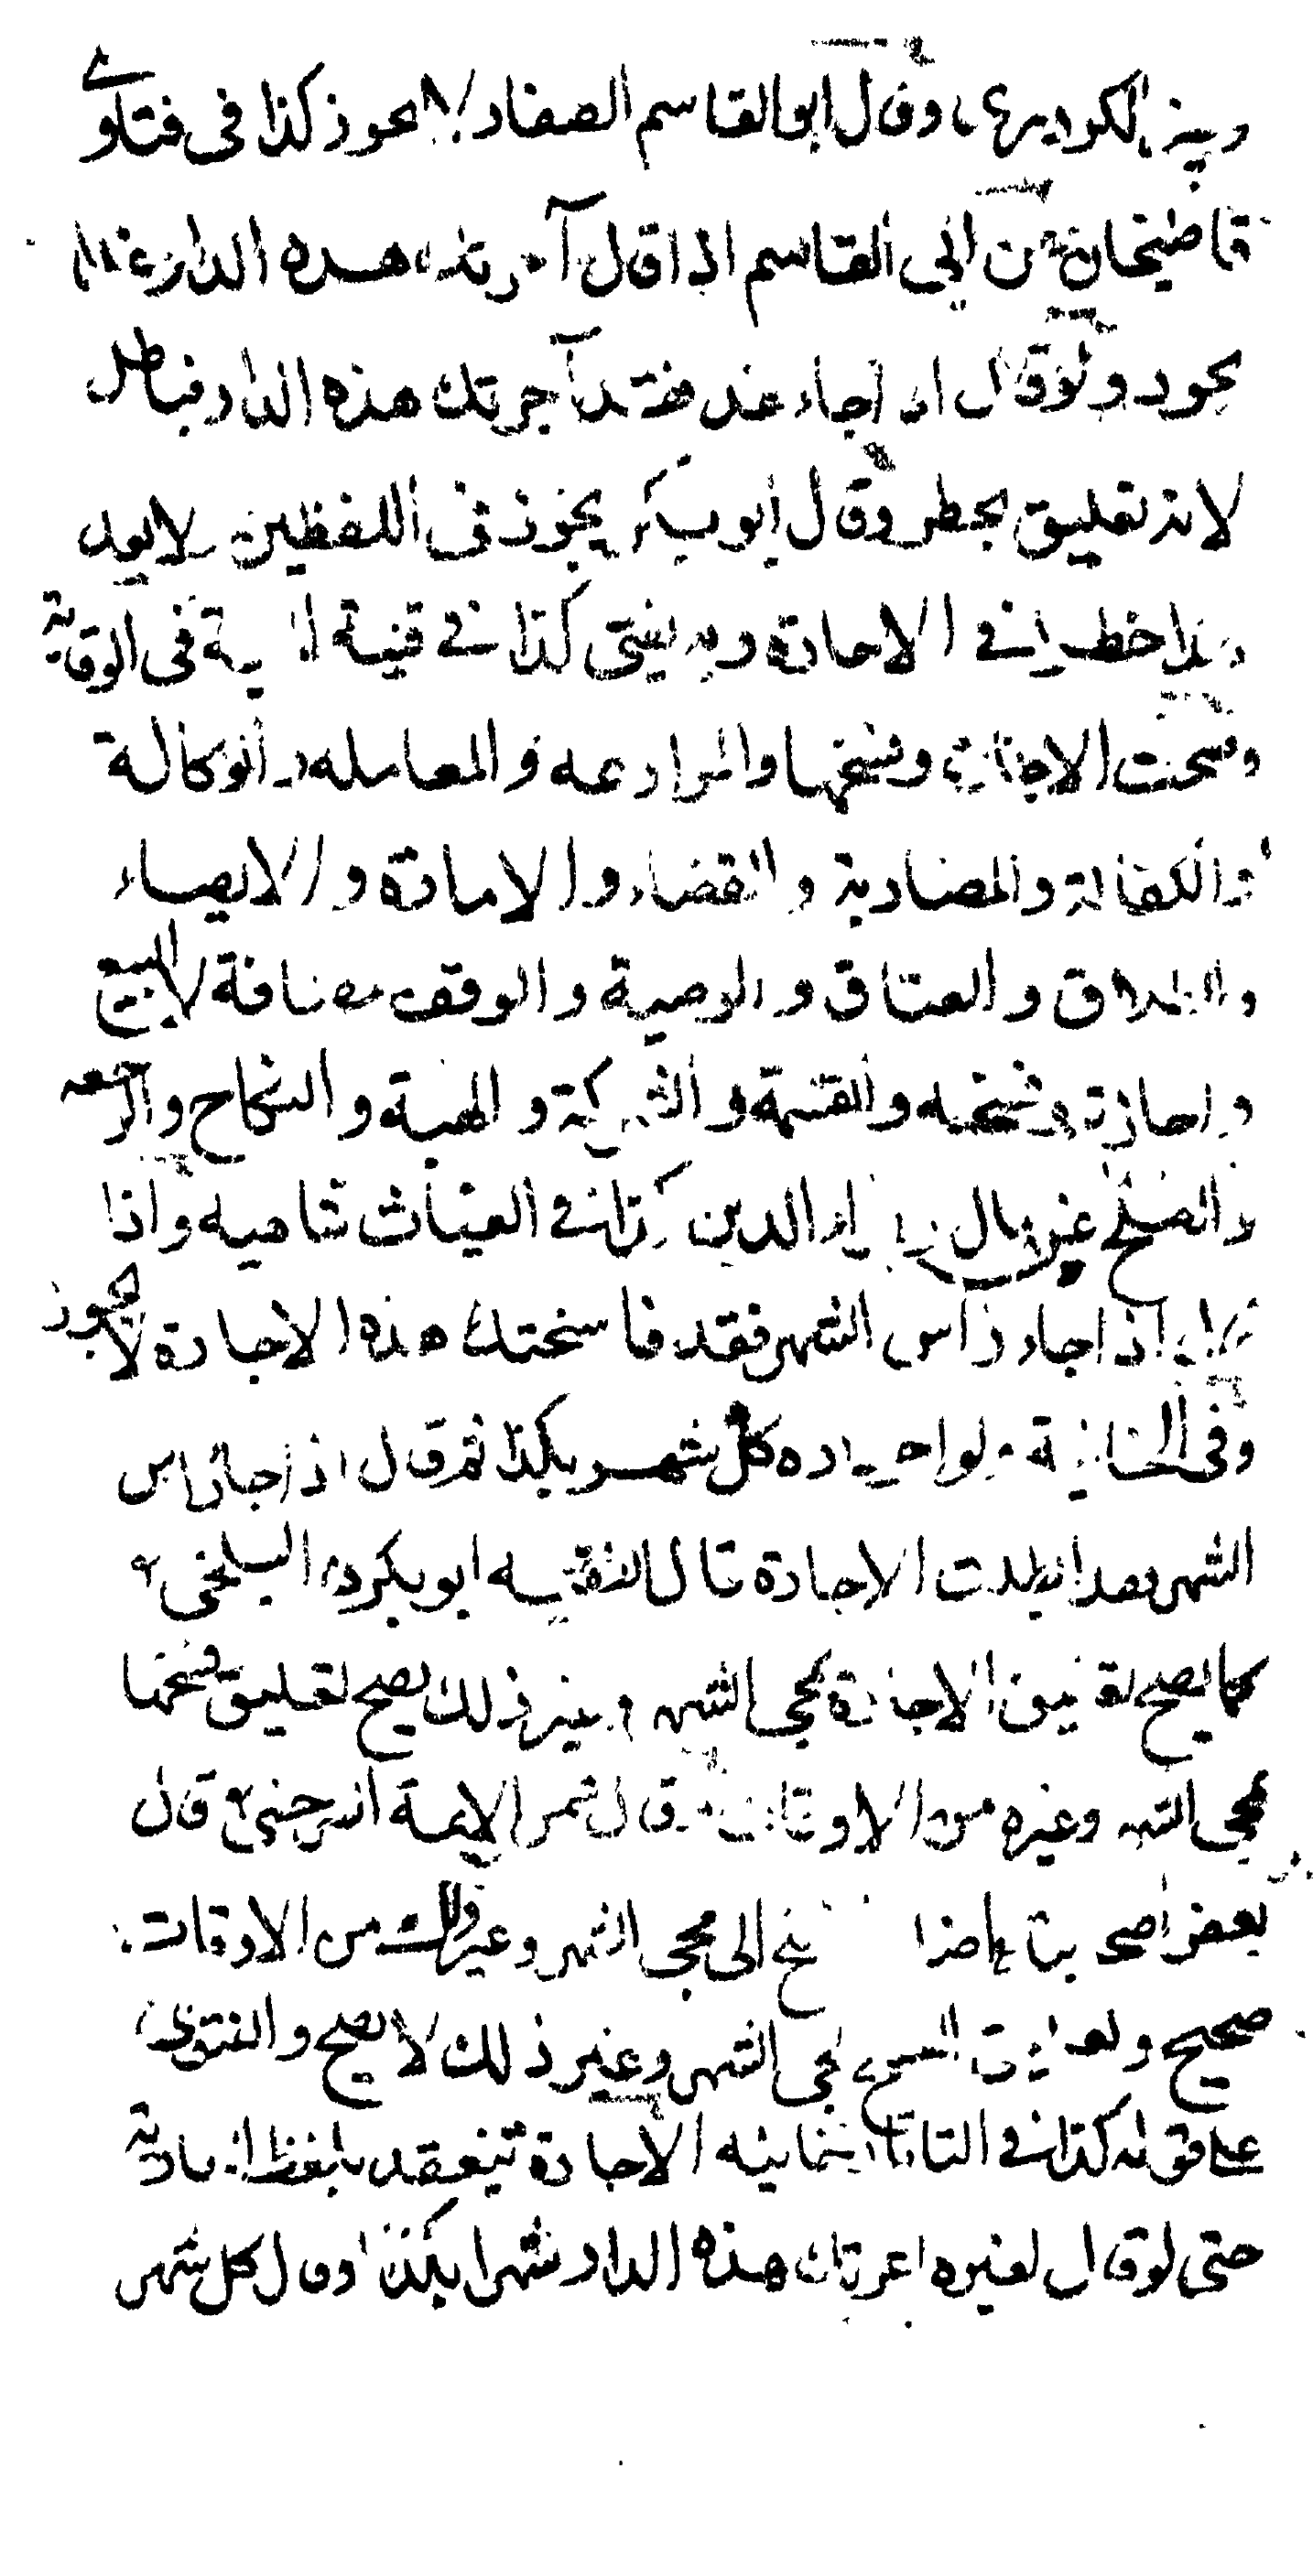 وقال ابو القاسم الصفار لا يجوز كذا فى فتاوى
قاضيخان عن ابى القاسم اذا قال آجرتك هذه الدار غدا
يجوز ولو قال اذا جاء غد فقد آجرتك هذه الدار فباطل
لانه تعليق بخطر وقال ابو بكر يجوز فى اللفظين لا يعد
هذا خطرا فى الاجارة وبه يفتى كذا فى قنية المنية فى الوقاية
وصحت الاجارة وفسخها والمزارعه والمعامله والوكالة
والكفالة والمضاربة والقضاء والامارة والايصاء
والطلاق والعتاق والوصية والوقف مضافة لا البيع
واجازته وفسخه والقسمة والشركة والهبة والنكاح والرجعه
والصلح عن مال وابراء الدين كذا فى الغياث شاهيه واذا
قال اذا جاء راس الشهر فقد فاسختك هذه الاجارة لا يجوز
وفى الخانية ولو اجر داره كل شهر بكذا ثم قال اذا جاء راس
الشهر فقد ابطلت الاجارة قال الفقيه ابو بكر البلخى
كما يصح تعليق الاجارة بمجى الشهر وغير ذلك يصح تعليق فسخها
بمجى الشهر وغيره من الاوقات قال شمس الايمة السرخسى قال
بعض اصحابنا اضافة الفسخ الى مجى الشهر وغير ذلك من الاوقات
صحيح وتعليق الفسخ بمجى الشهر وغير ذلك لا يصح والفتوى
على قوله كذا فى التاتارخانيه الاجارة تنعقد بلفظ العارية
حتى لو قال لغيره اعرتك هذه الدار شهرا بكذا او قال كل شهر